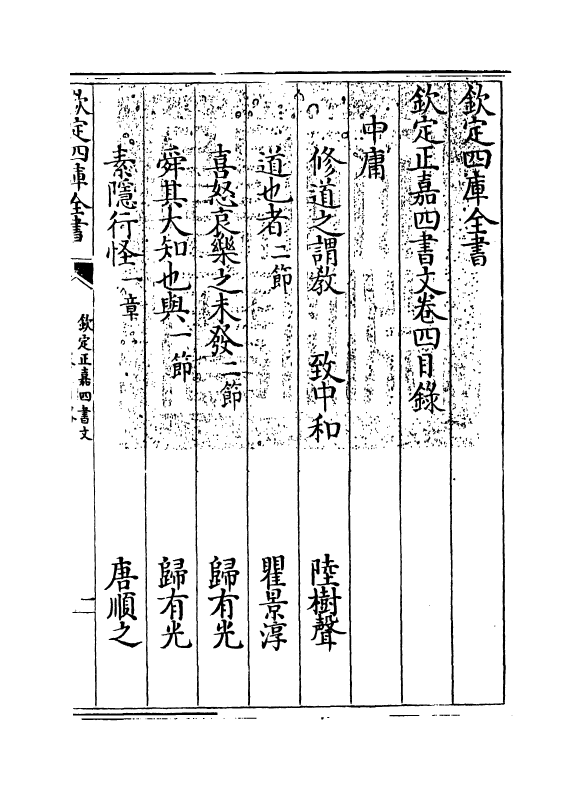 欽定四庫全書
欽定正嘉四書文卷四目錄
中庸
修道之謂教 致中和 陸樹聲
道也者二節 瞿景淳
喜怒哀樂之未發二節 歸有光
舜其大知也與一節 歸有光
素隱行怪一章 唐順之
欽定四庫全書
欽定正嘉四書文